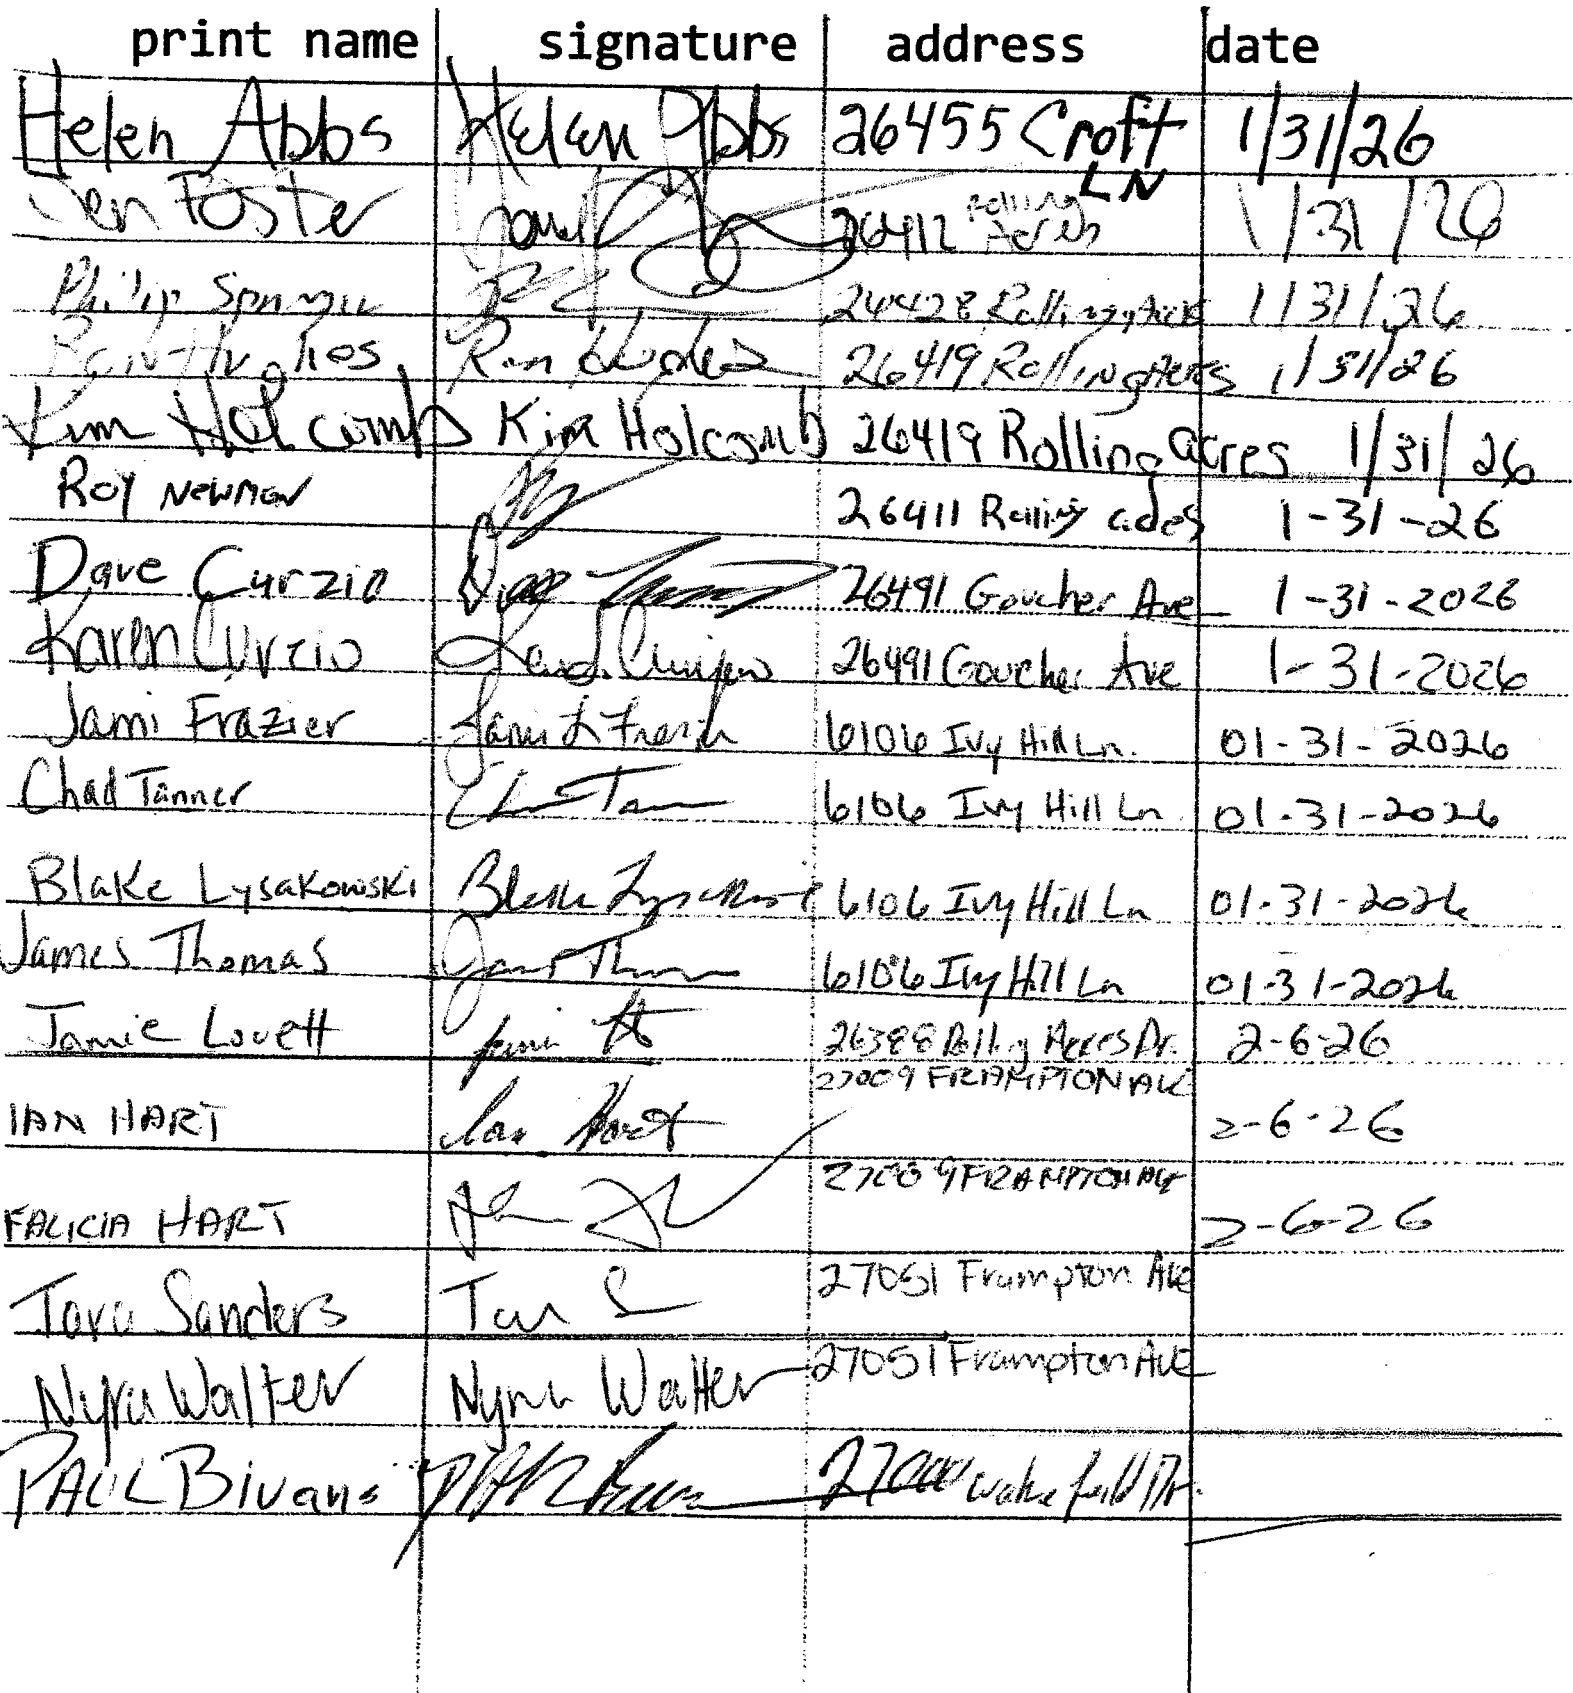 print name signature address date
Helen Abbs Helen Abbs 26455 Croft LN 1/31/26
Jen Foster 26412 Rolling Acres 1/31/26
Philip 26428 Rolling 1/31/26
Ron Hughes Ron Hughes 26419 Rolling Acres 1/31/26
Kim Holcomb Kim Holcomb 26419 Rolling acres 1/31/26
Roy Newman 26411 Rolling 1-31-26
Dave Curzio 26491 Goucher Ave 1-31-2026
Karen Curzio 26491 Goucher Ave 1-31-2026
Jami Frazier Jami L Frazier 6106 Ivy Hill Ln. 01-31-2026
Chad Tanner 6106 Ivy Hill Ln 01-31-2026
Blake Lysakowski Blake Lysakowski 6106 Ivy Hill Ln 01-31-2026
James Thomas 6106 Ivy Hill Ln 01-31-2026
Jamie Lovett 26388 Rolling Acres Dr. 2-6-26
IAN HART Ian Hart 27009 FRAMPTON AVE 2-6-26
FALICIA HART 27009 FRAMPTON AVE 2-6-26
Tara Sanders 27051 Frampton Ave
Nyra Walter Nyra Walter 27051 Frampton Ave
PAUL Bivans 27000 Wakefield Dr.